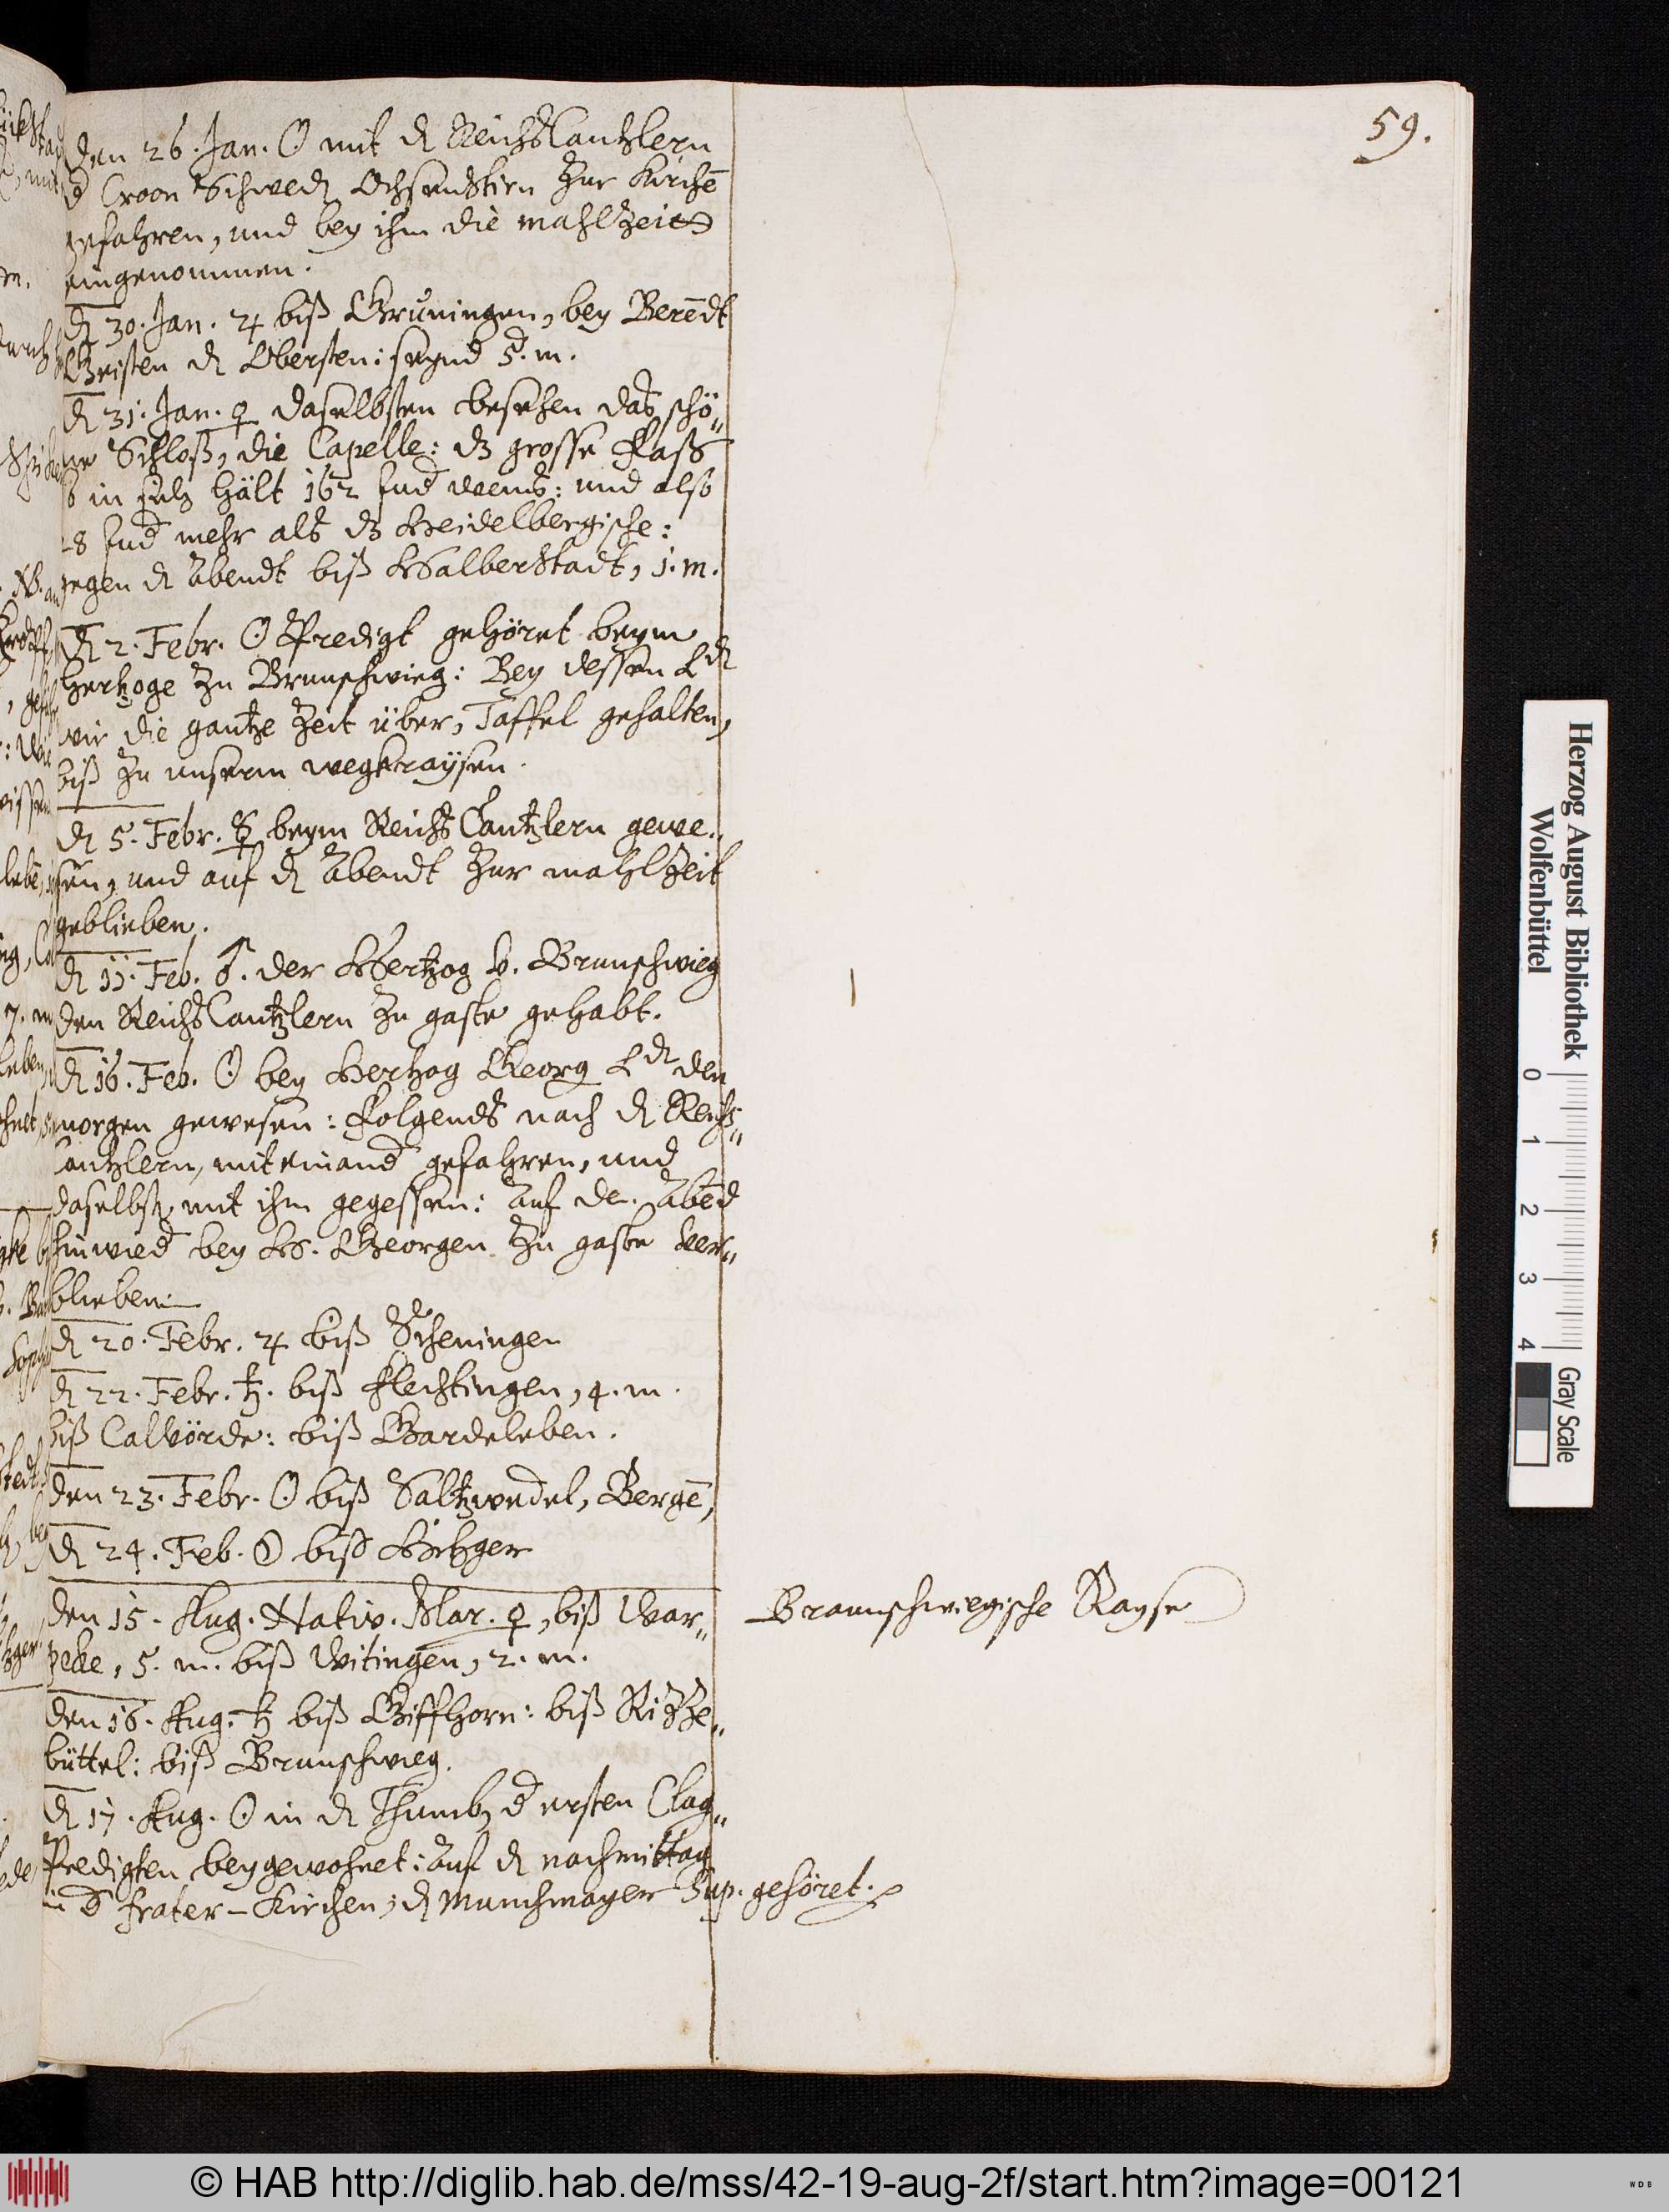 59.
den 26. Jan. ☉ mit dn ReichsCantzlern
d Croon Schwedn Ochsenstirn zur Kirchē
gefahren, und bey ihm die mahlzeit
eingenommen.
dn 30. Jan. ♃ biß Gruningen, bey Berēdt
Geisten dn Obersten: seynd 5. m.
dn 31. Jan. ♀ daselbsten besehen das schö„
ne Schloß, die Capelle: dz grosse Faß
so in sich hält 162 fud weins: und also
28 fud mehr als dz Heidelbergische:
gegen dn Abendt biß Halberstadt, 1. m.
dn 2. Febr. ☉ Predigt gehöret beym
Hertzoge zu Brunschwieg: Bey dessen Ldn
wir die gantze Zeit über, Taffel gehalten,
biß zu unserm wegkraysen.
dn 5. Febr. ☿ beym ReichsCantzlern gewe„
sen, und auf dn Abendt zur mahlzeit
geblieben.
dn 11. Feb. ♂. der Hertzog v. Brunschwieg
den ReichsCantzlern zu gaste gehabt.
dn 16. Feb. ☉ bey Hertzog Georg Ldn den
morgen gewesen: Folgends nach dn Reichs„
Cantzlern, mit einand gefahren, und
daselbst mit ihm gegessen: Auf de. Abēd
hinwied bey H. Georgen zu gaste ver„
blieben.
dn 20. Febr. ♃ biß Scheningen
dn 22. Febr. ♄. biß Flechtingen, 4. m.
biß Calvörde: biß Gardeleben.
den 23. Febr. ☉ biß Saltzwedel, Bergē,
dn 24. Feb. ☽ biß Hitzger
den 15. Aug. Nativ. Mar. ♀, biß War„
peke, 5. m. biß Witingen, 2. m.
Braunschwiegische Rayse
den 16. Aug. ♄ biß Giffhorn: biß Ritze„
büttel: biß Brunschwieg.
dn 17. Aug. ☉ in dn Thumb, d ersten Clag„
Predigten beygewohnet: Auf dn nachmittag
in d frater-Kirchen, dn Munchmayer Sup. gehöret.
Herzog August Bibliothek
Wolfenbüttel
0 1 2 3 4
Gray Scale
© HAB http://diglib.hab.de/mss/42-19-aug-2f/start.htm?image=00121
WDB